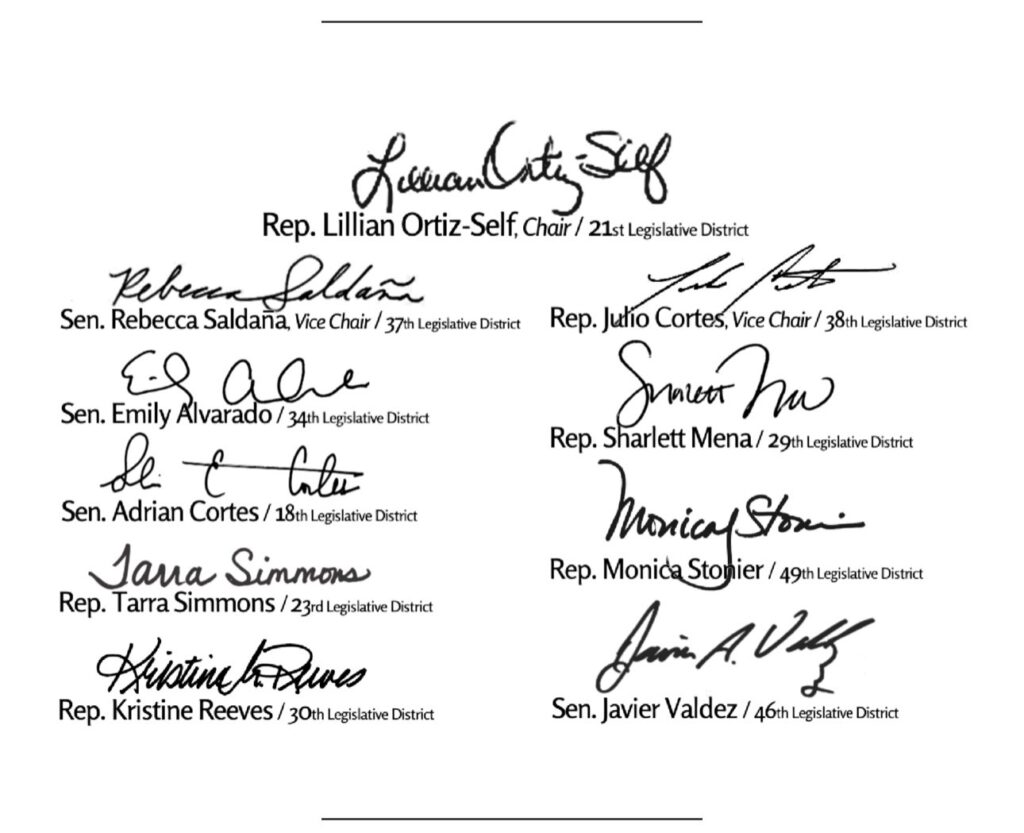 Lillian Ortiz-Self
Rep. Lillian Ortiz-Self, Chair / 21st Legislative District
Rebecca Saldaña
Sen. Rebecca Saldaña, Vice Chair / 37th Legislative District
Rep. Julio Cortes, Vice Chair / 38th Legislative District
Sen. Emily Alvarado / 34th Legislative District
Sharlett
Rep. Sharlett Mena / 29th Legislative District
Sen. Adrian Cortes / 18th Legislative District
Monica Stonier
Rep. Monica Stonier / 49th Legislative District
Tarra Simmons
Rep. Tarra Simmons / 23rd Legislative District
Kristine Reeves
Rep. Kristine Reeves / 30th Legislative District
Javier A. Valdez
Sen. Javier Valdez / 46th Legislative District